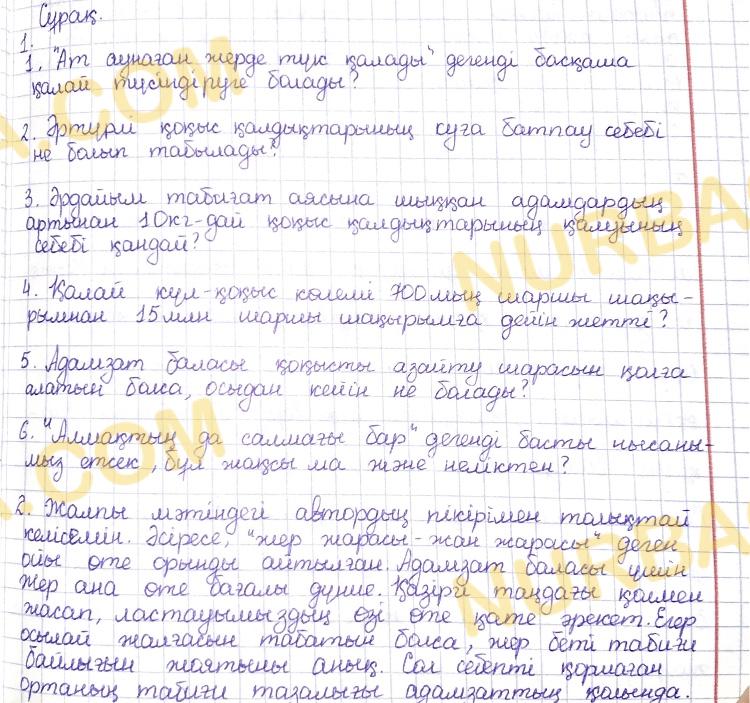 Сұрақ.
1.
1. "Ат аунаған жерде түк қалады" дегенді басқаша
қалай түсіндіруге болады?
2. Әртүрлі қоқыс қалдықтарының суға батпау себебі
не болып табылады?
3. Әрдайым табиғат аясына шыққан адамдардың
артынан 10кг-дай қоқыс қалдықтарының қалуының
себебі қандай?
4. Қалай күл-қоқыс көлемі 700мың шаршы шақы-
рымнан 15млн шаршы шақырымға дейін жетті?
5. Адамзат баласы қоқысты азайту шарасын қолға
алатын болса, осыдан кейін не болады?
6. "Алмақтың да салмағы бар" дегенді басты нысаны-
мыз етсек, бұл жақсы ма және неліктен?
2. Жалпы мәтіндегі автордың пікірімен толықтай
келісемін. Әсіресе, "жер жарасы-жан жарасы" деген
ойы өте орынды айтылған. Адамзат баласы үшін
жер ана өте бағалы дүние. Қазіргі таңдағы қолмен
жасап, ластауымыздың өзі өте қате әрекет. Егер
осылай жалғасын табатын болса, жер беті табиғи
байлығын жоятыны анық. Сол себепті қоршаған
ортаның табиғи тазалығы адамзаттың қолында.
NURBA
A.COM
NURBA
A.COM